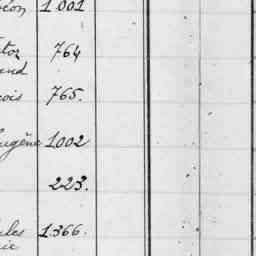 éon 1001
tor 764
and
çois 765.
Eugène 1002
223.
ules 1366.
rie